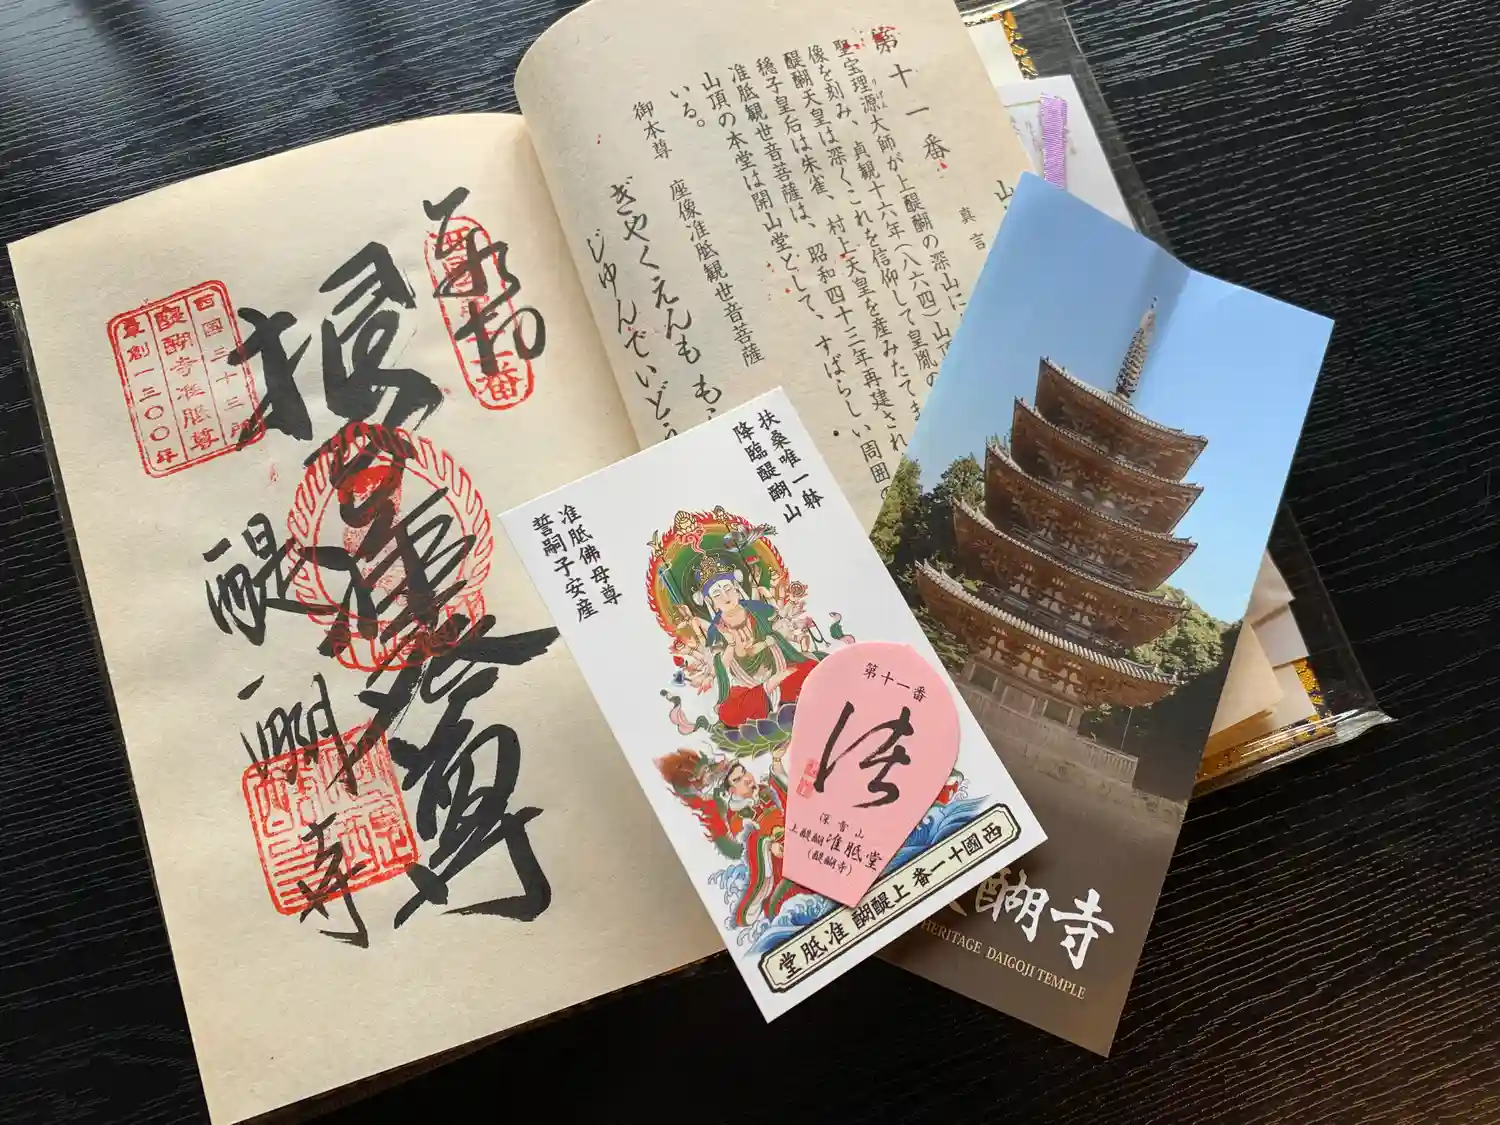 奉拝
西国
十一番
西國三十三所
醍醐寺准胝尊
草創一三〇〇年
根本准胝尊
醍醐寺
第十一番
真言
聖宝理源大師が上醍醐の深山に
像を刻み、貞観十六年(八六四)山
醍醐天皇は深くこれを信仰して皇胤の
穏子皇后は朱雀、村上天皇を産みたてま
准胝観世音菩薩は、昭和四十三年再建され
山頂の本堂は開山堂として、すばらしい周囲の
いる。
御本尊 座像准胝観世音菩薩
ぎやくえんも も
じゅんでいどう
扶桑唯一躰
降臨醍醐山
准胝佛母尊
誓嗣子安産
西國十一番上醍醐准胝堂
第十一番
深雪山
上醍醐准胝堂
(醍醐寺)
醐寺
HERITAGE DAIGOJI TEMPLE